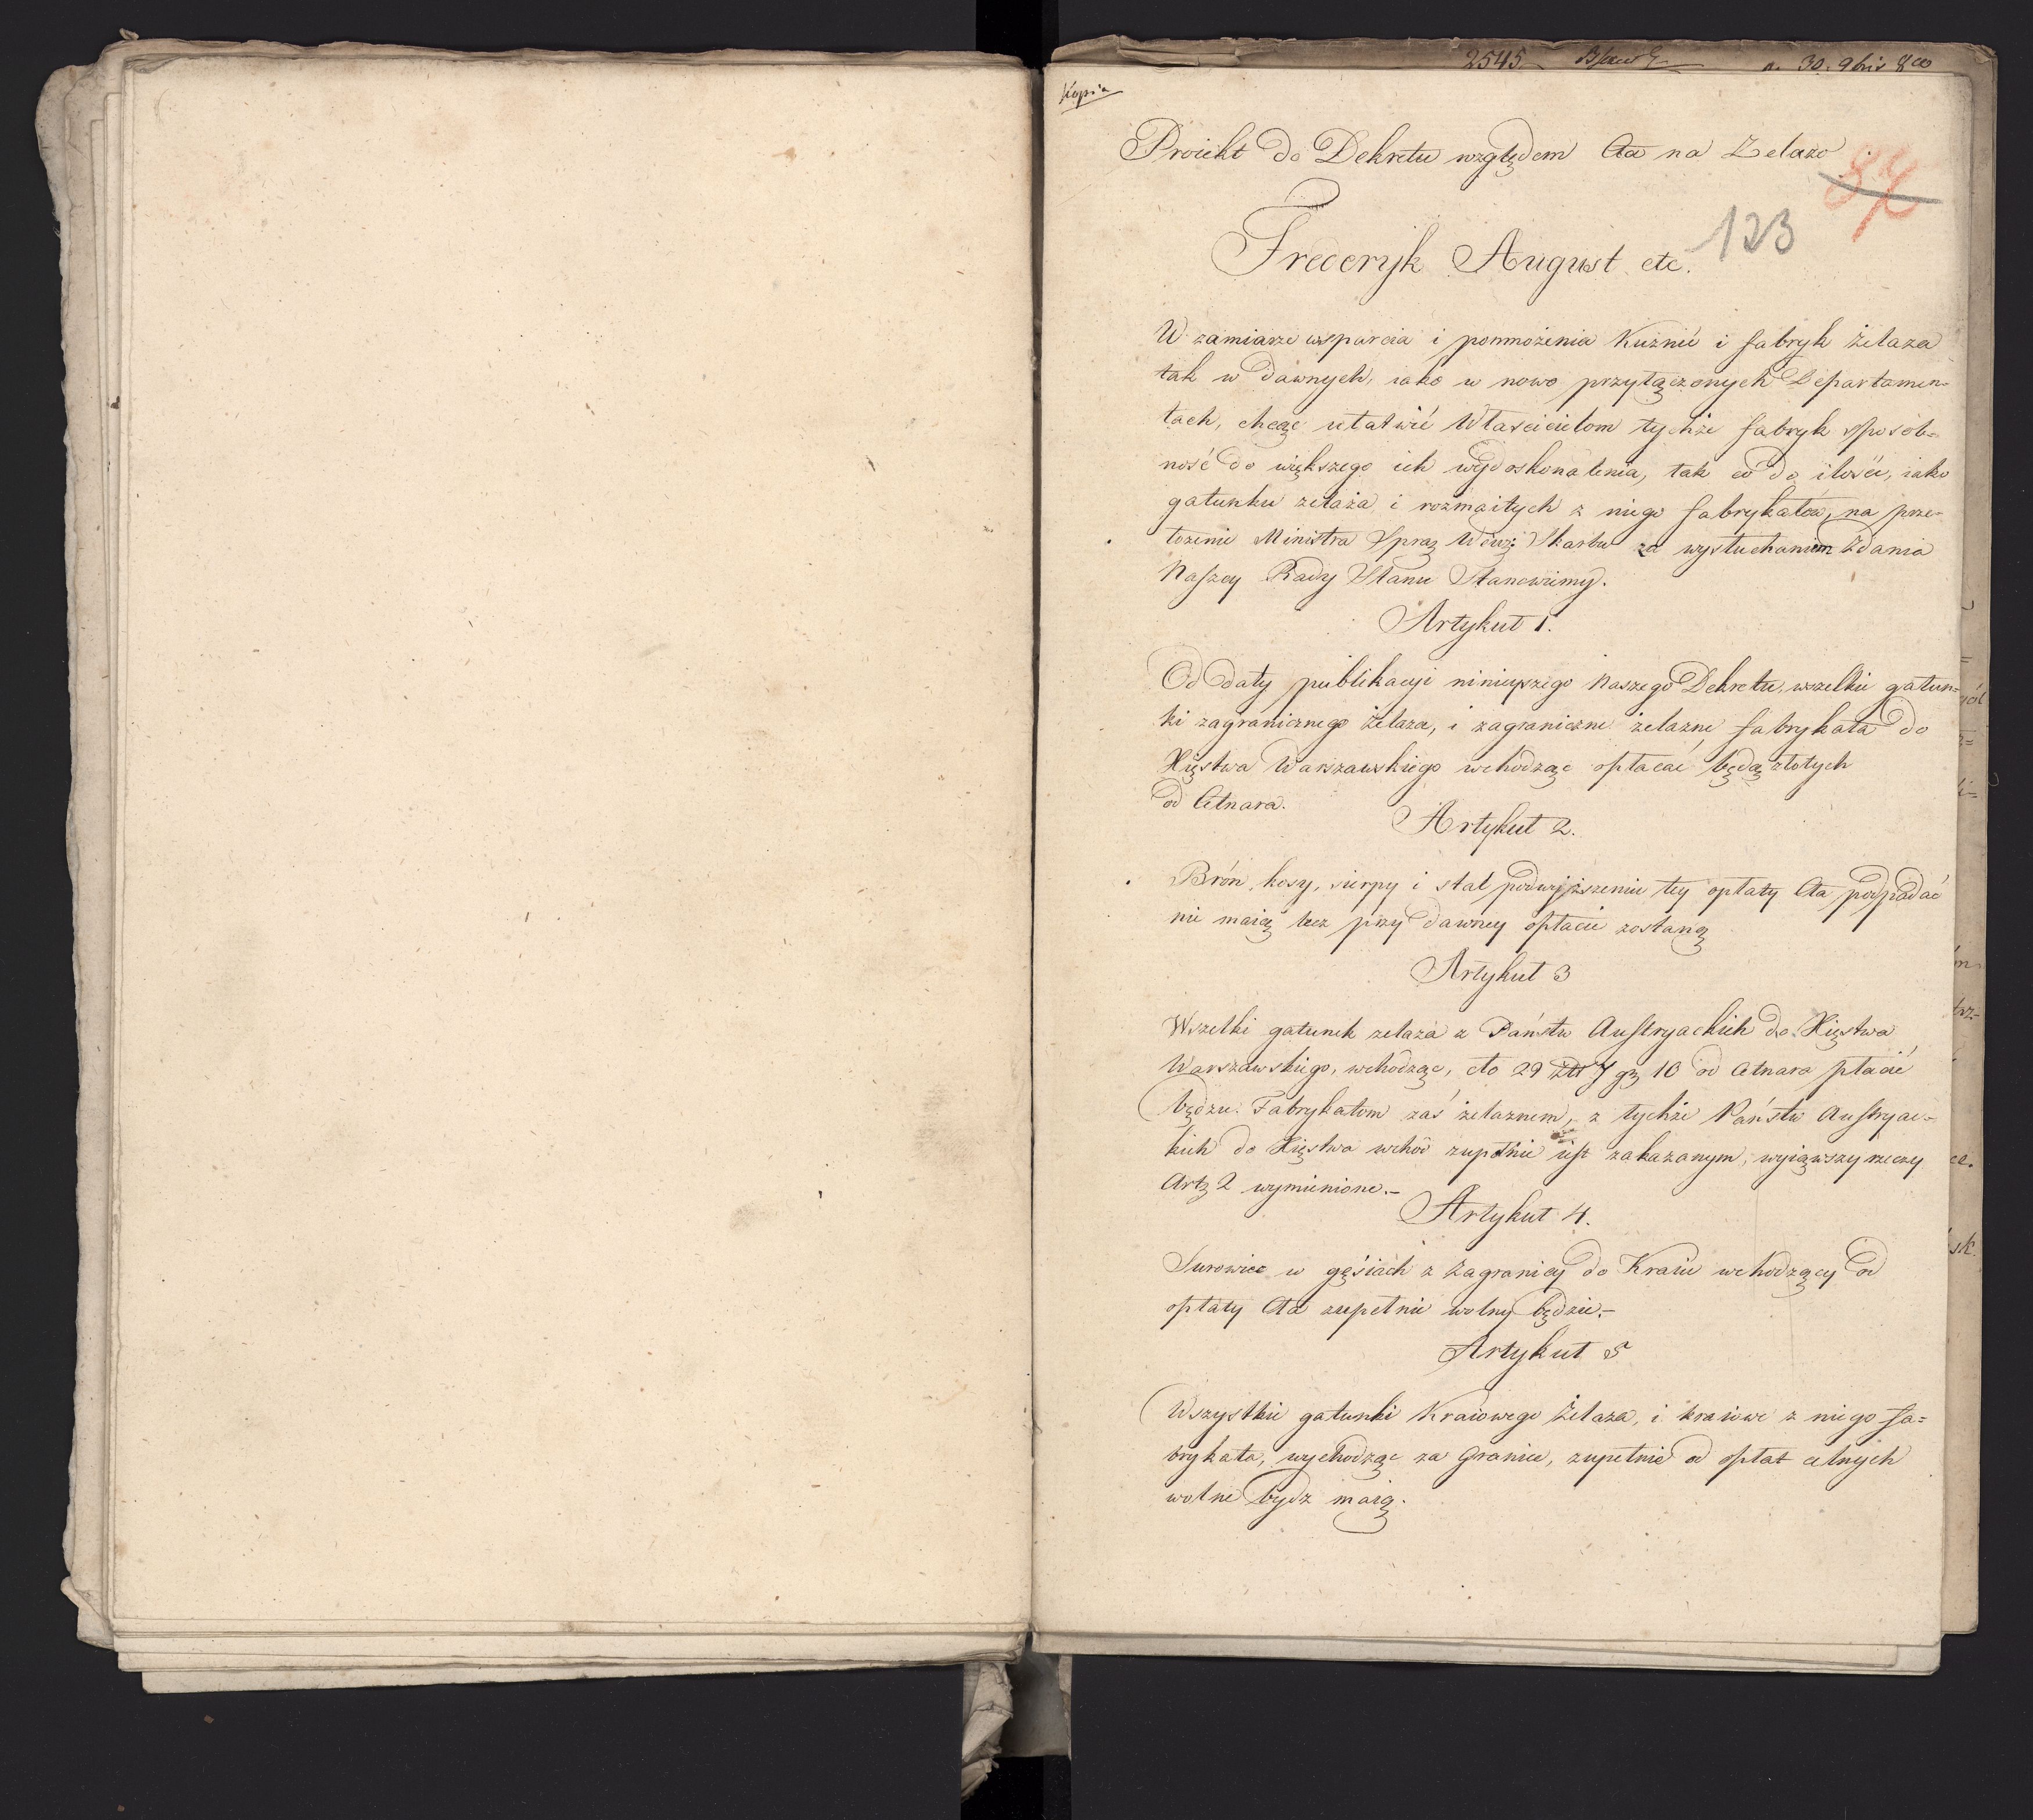 2545
30. 9bris 8
Kopia
Proiekt do Dekretu względem Cła na Żelazo
87
123
Frederyk August etc.
W zamiarze wsparcia i pomnożenia Kuźnić i fabryk żelaza
tak w dawnych, iako w nowo przyłączonych Departamen-
tach, chcąc ułatwić Własćicielom tychże fabryk sposob-
ność do większego ich wydoskonalenia, tak co do ilośći, iako
gatunku żelaza i rozmaitych z niego fabrykatów, na prze-
łożenie Ministra Spraw Wewn: i Skarbu za wysłuchaniem Zdania
Naszey Rady Stanu Stanowiemy.
Artykuł 1.
Od daty publikacyi ninieyszego Naszego Dekretu, wszelkie gatun-
ki zagranicznego żelaza, i zagraniczne żelazne fabrykata do
Xięstwa Warszawskiego wchodząc opłacać będą złotych
od Cetnara.
Artykuł 2.
Broń, kosy, sierpy i stal podwyższeniu tey opłaty Cła podpadać
nie maią lecz przy dawney opłacie zostaną
Artykuł 3
Wszelki gatunek żelaza z Państw Austryackich do Xięstwa
Warszawskiego, wchodząc, cło 29 gr 10 od Cetnara płacić
będzie. Fabrykatom zaś żelaznem, z tychże Państw Austryac-
kich do Xięstwa wchód zupełnie iest zakazanym, wyiąwszy rzeczy
Art 2 wymienione.-
Artykuł 4.
Surowiec w gęśiach z Zagranicy do Kraiu wchodzący od
opłaty Cła zupełnie wolny będzie.-
Artykuł 5
Wszystkie gatunki Kraiowego Żelaza, i kraiowe z niego fa=
brykata, wychodząc za Granice, zupełnie od opłat celnych
wolne bydź maią.